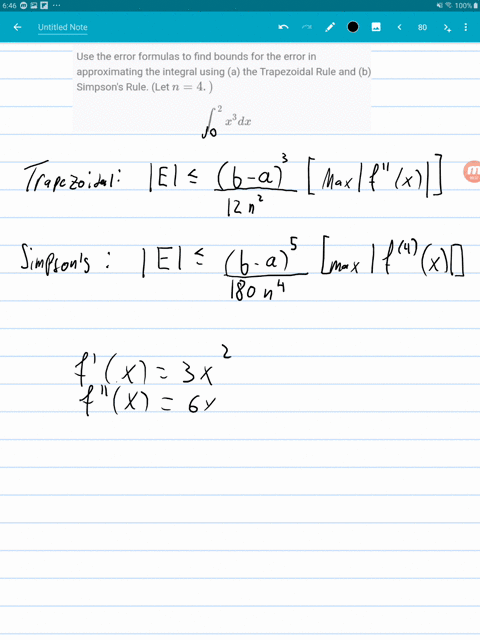 6:46 100%
Untitled Note 80
Use the error formulas to find bounds for the error in
approximating the integral using (a) the Trapezoidal Rule and (b)
Simpson's Rule. (Let n = 4. )
∫₀² x³dx
Trapezoidal: |E| ≤ (b-a)³/12n² [Max|f''(x)|]
Simpson's: |E| ≤ (b-a)⁵/180n⁴ [max|f⁽⁴⁾(x)|]
f'(x) = 3x²
f''(x) = 6x